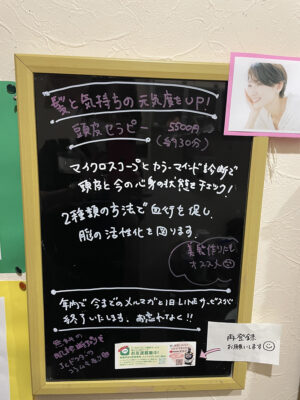 髪と気持ちの元気度をUP!
頭皮セラピー 5500円
(約30分)
マイクロスコープとカラーマインド診断で
頭皮と今の心身の状態をチェック!
2種類の方法で血行を促し、
脳の活性化を図ります。
美髪作りにも
オススメ
年内で今までのメルマガと旧LINEサービスが
終了いたします。お忘れなく!!
再登録
お願いします